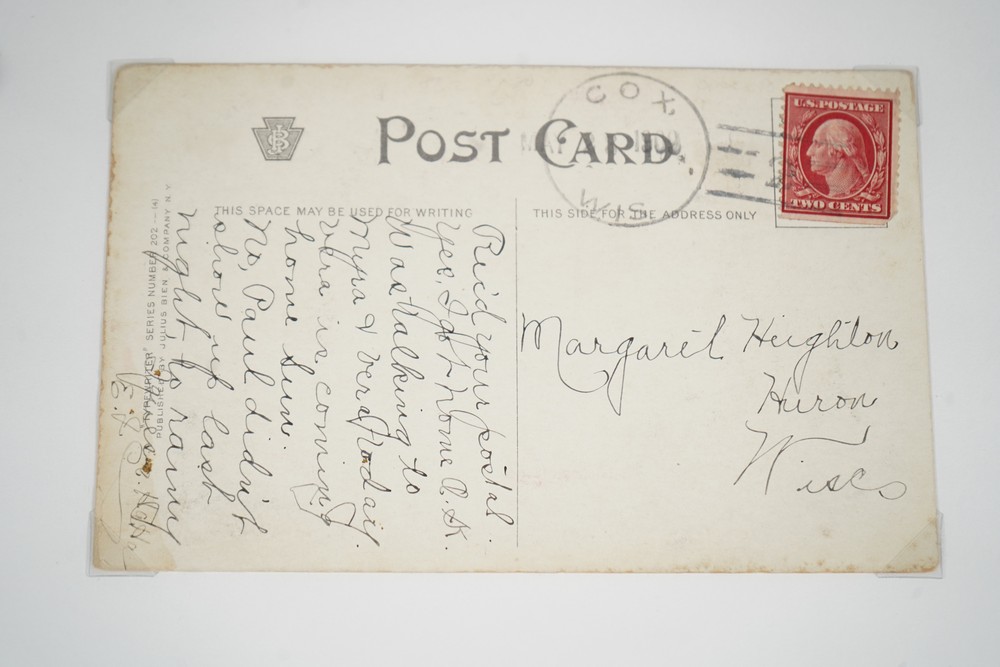 POST CARD.
COX
WIS.
1909
U.S. POSTAGE
TWO CENTS
THIS SPACE MAY BE USED FOR WRITING
THIS SIDE FOR THE ADDRESS ONLY
Rec'd your postal.
Yes, I got home O.K.
Was talking to
Myra & Vera today.
Vera is coming
home Sun.
No, Paul didn't
show up last
night, to rainy
Margaret Heighton
Huron
Wisc
"TYPEWRITER" SERIES NUMBER 202.—(4)
PUBLISHED BY JULIUS BIEN & COMPANY N.Y.